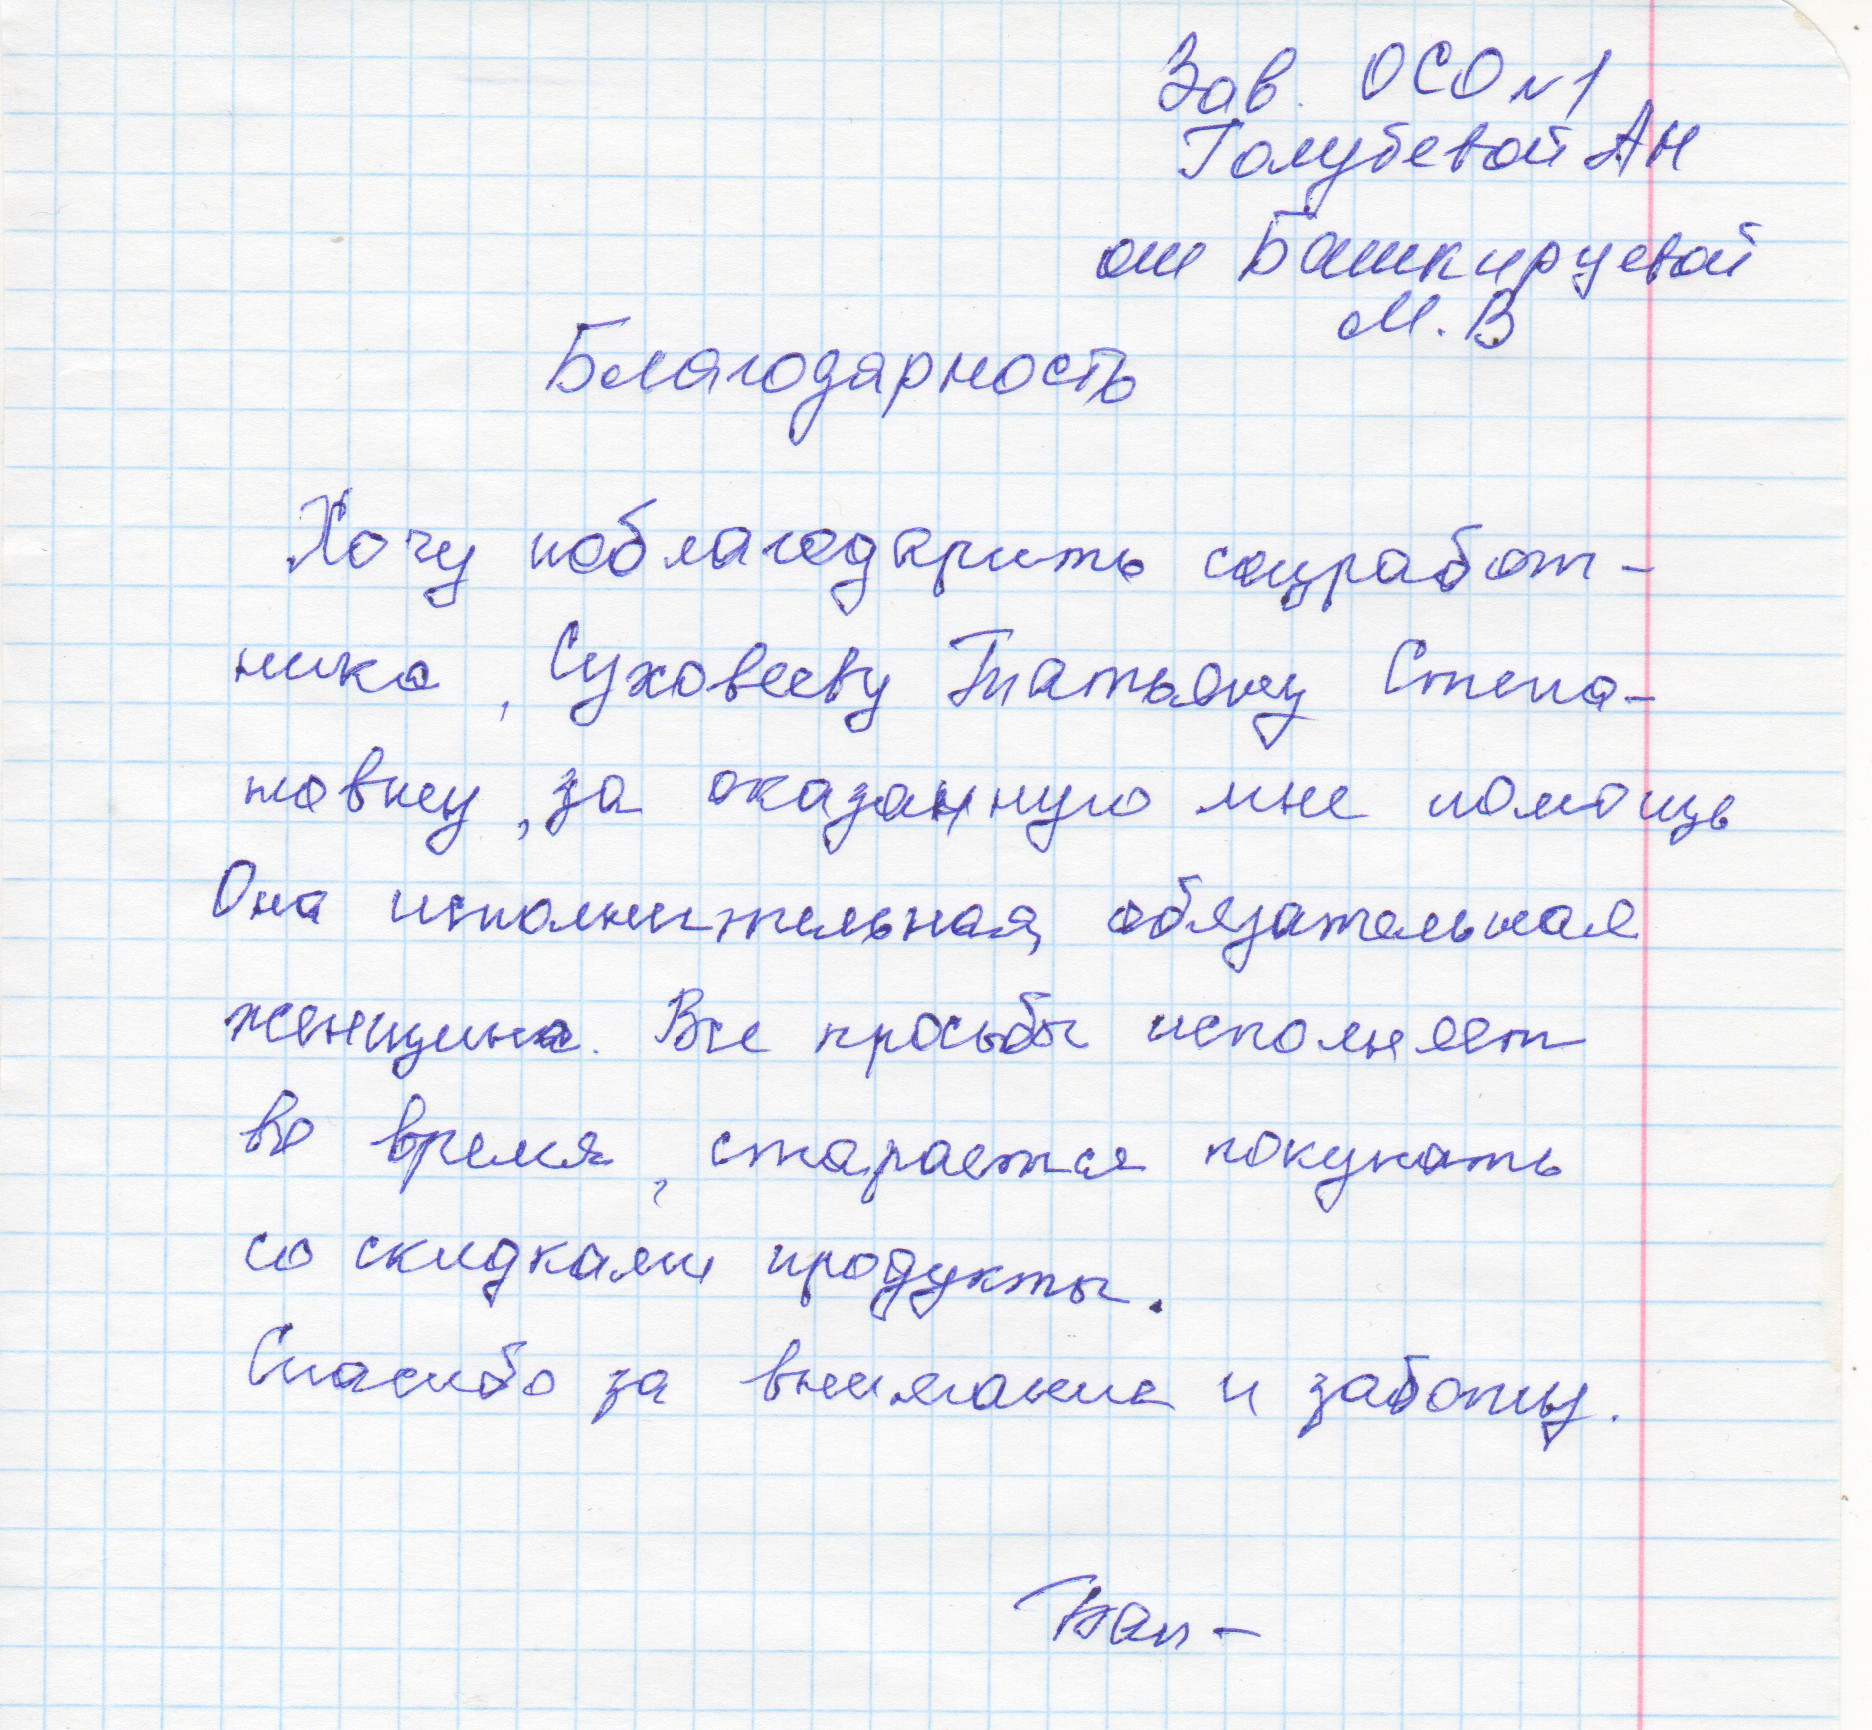 Зав. ОСО №1
Голубевой АН
от Башкирцевой
М.В
Благодарность
Хочу поблагодарить соцработ-
ника, Суховееву Татьяну Степа-
новну, за оказанную мне помощь
Она исполнительная, обязательная
женщина. Все просьбы исполняет
во время, старается покупать
со скидками продукты.
Спасибо за внимание и заботу.